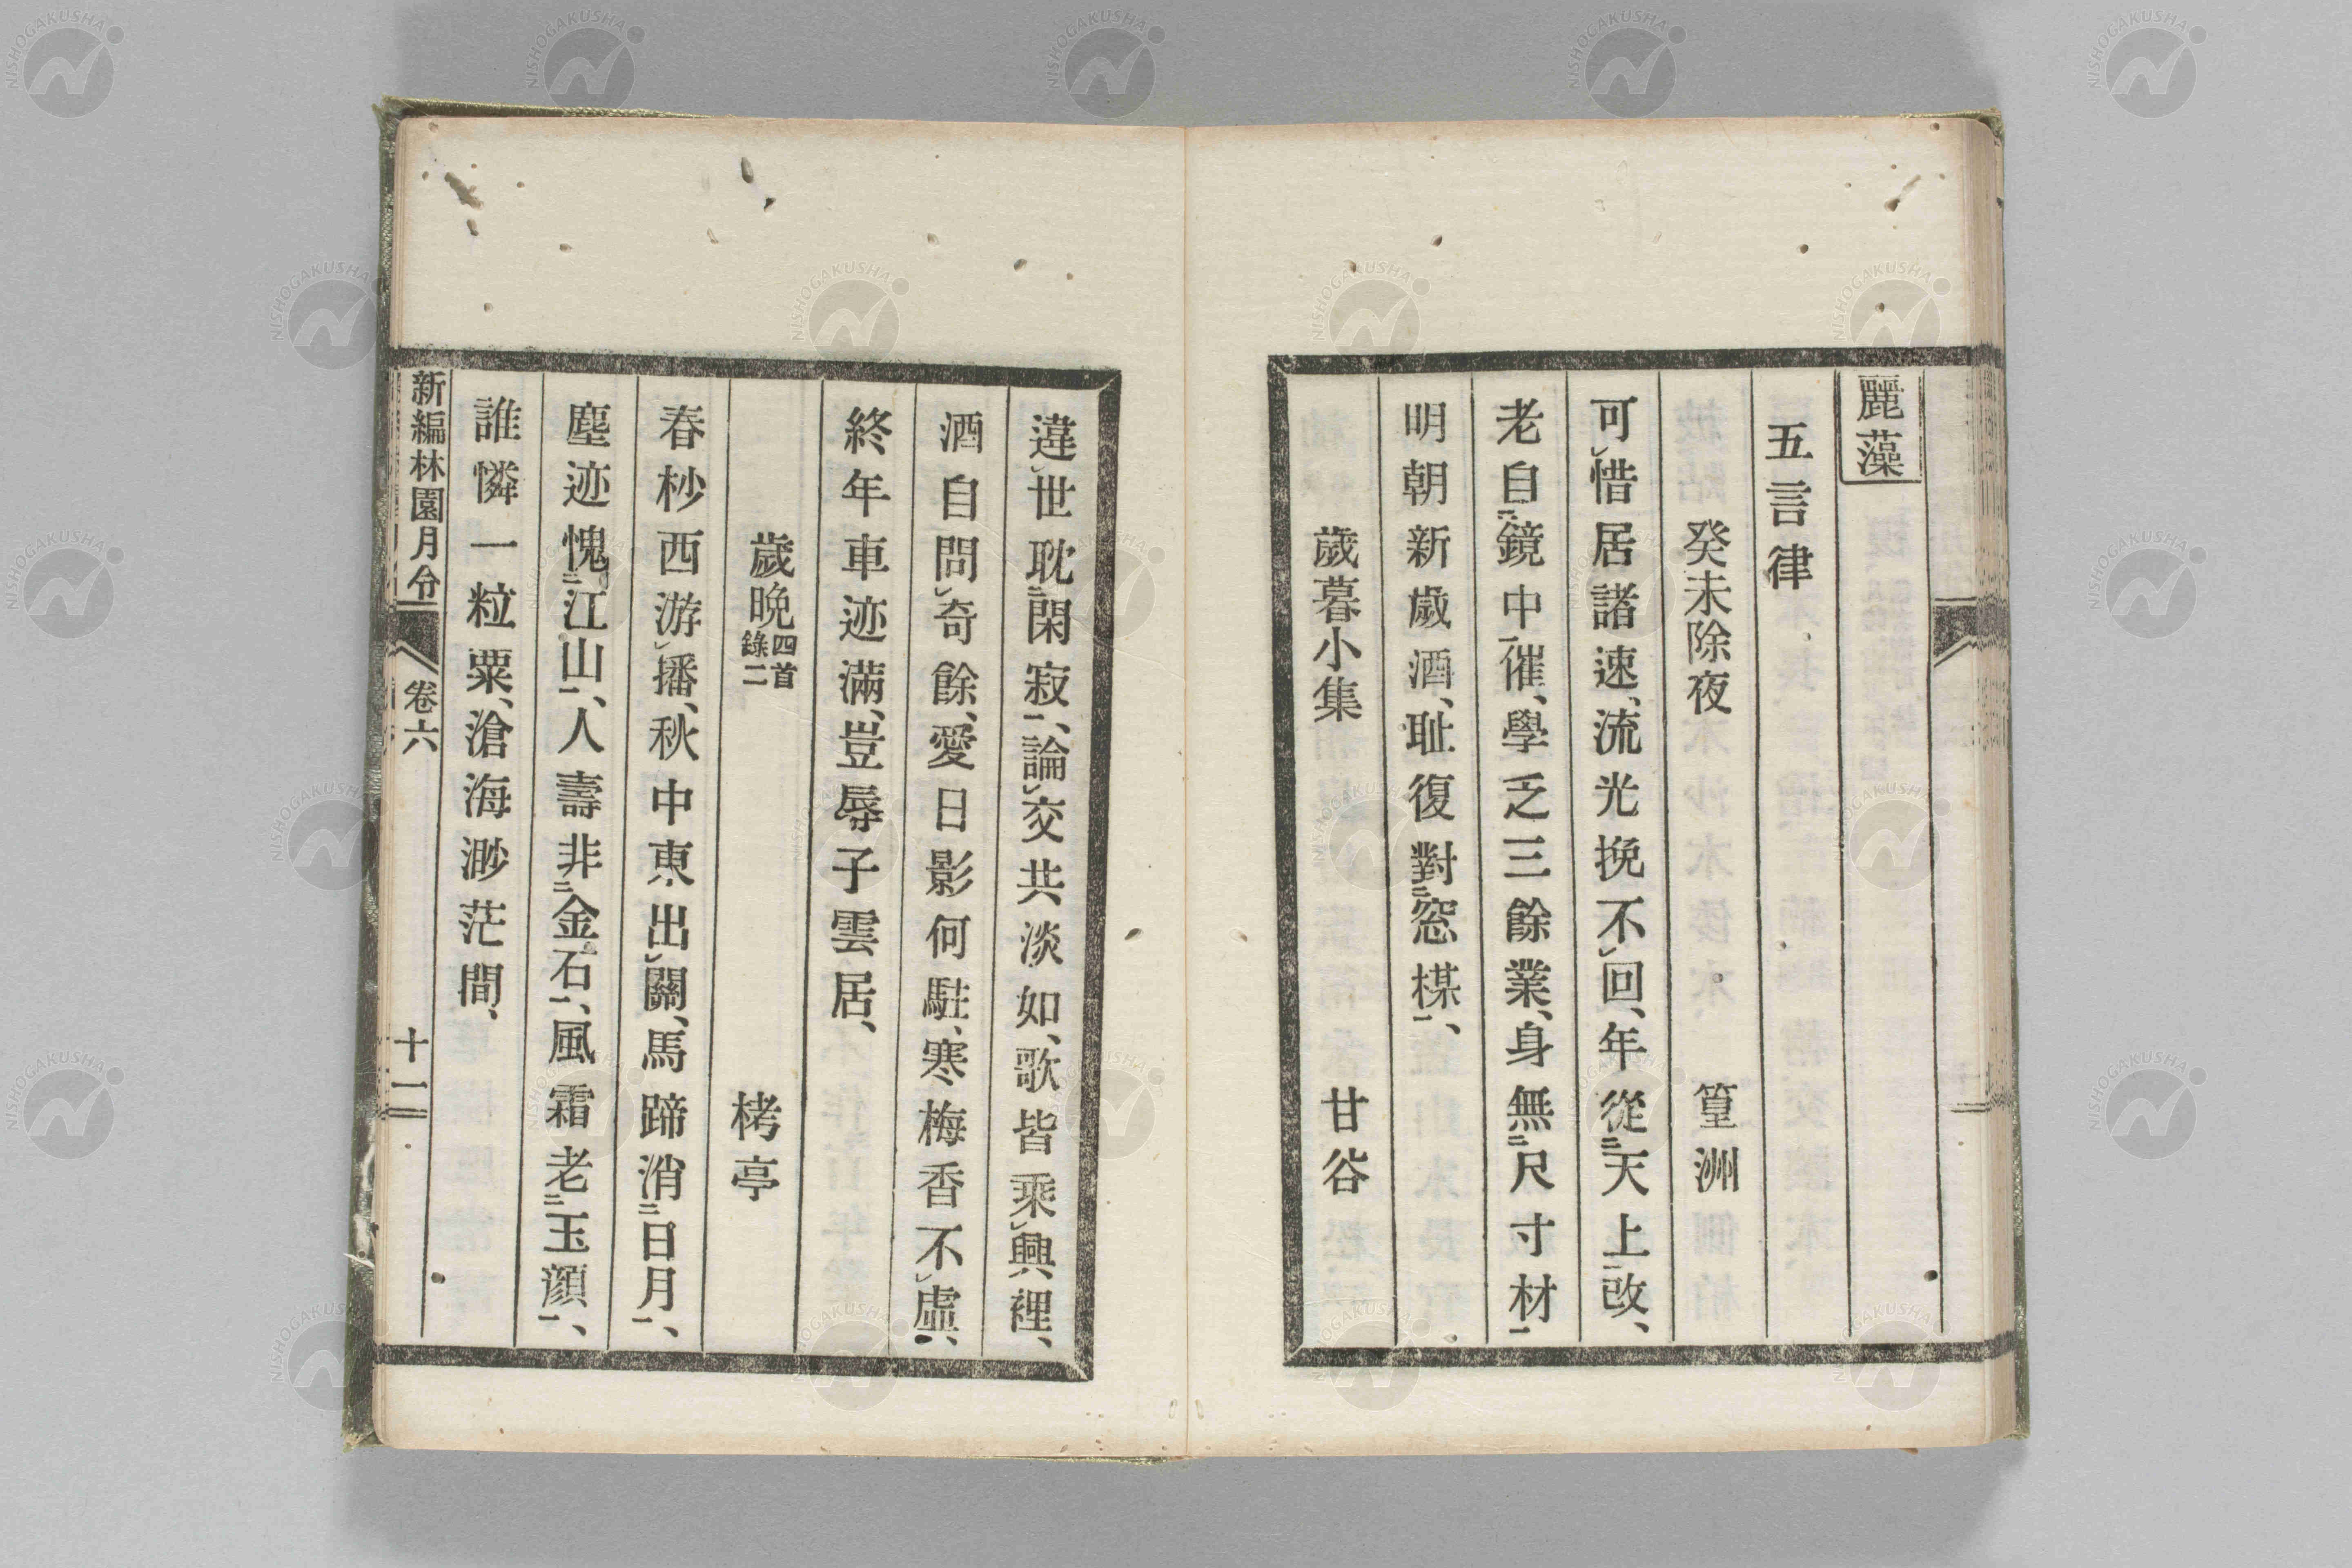 麗藻
五言律
癸未除夜 篁洲
可惜居諸速、流光挽不回、年從二天上一改、
老自二鏡中一催、學乏三餘業、身無二尺寸材一
明朝新歲酒、耻復對二窓楳一、
歲暮小集 甘谷
違世耽二閑寂一、論交共淡如、歌皆乘興裡、
酒自問奇餘、愛日影何駐、寒梅香不虛、
終年車迹滿、豈辱子雲居、
歲晚四首錄二 栲亭
春杪西游播、秋中東出關、馬蹄消二日月一、
塵迹愧二江山一、人壽非二金石一、風霜老二玉顏一、
誰憐一粒粟、滄海渺茫間、
新編林園月令 卷六 十一